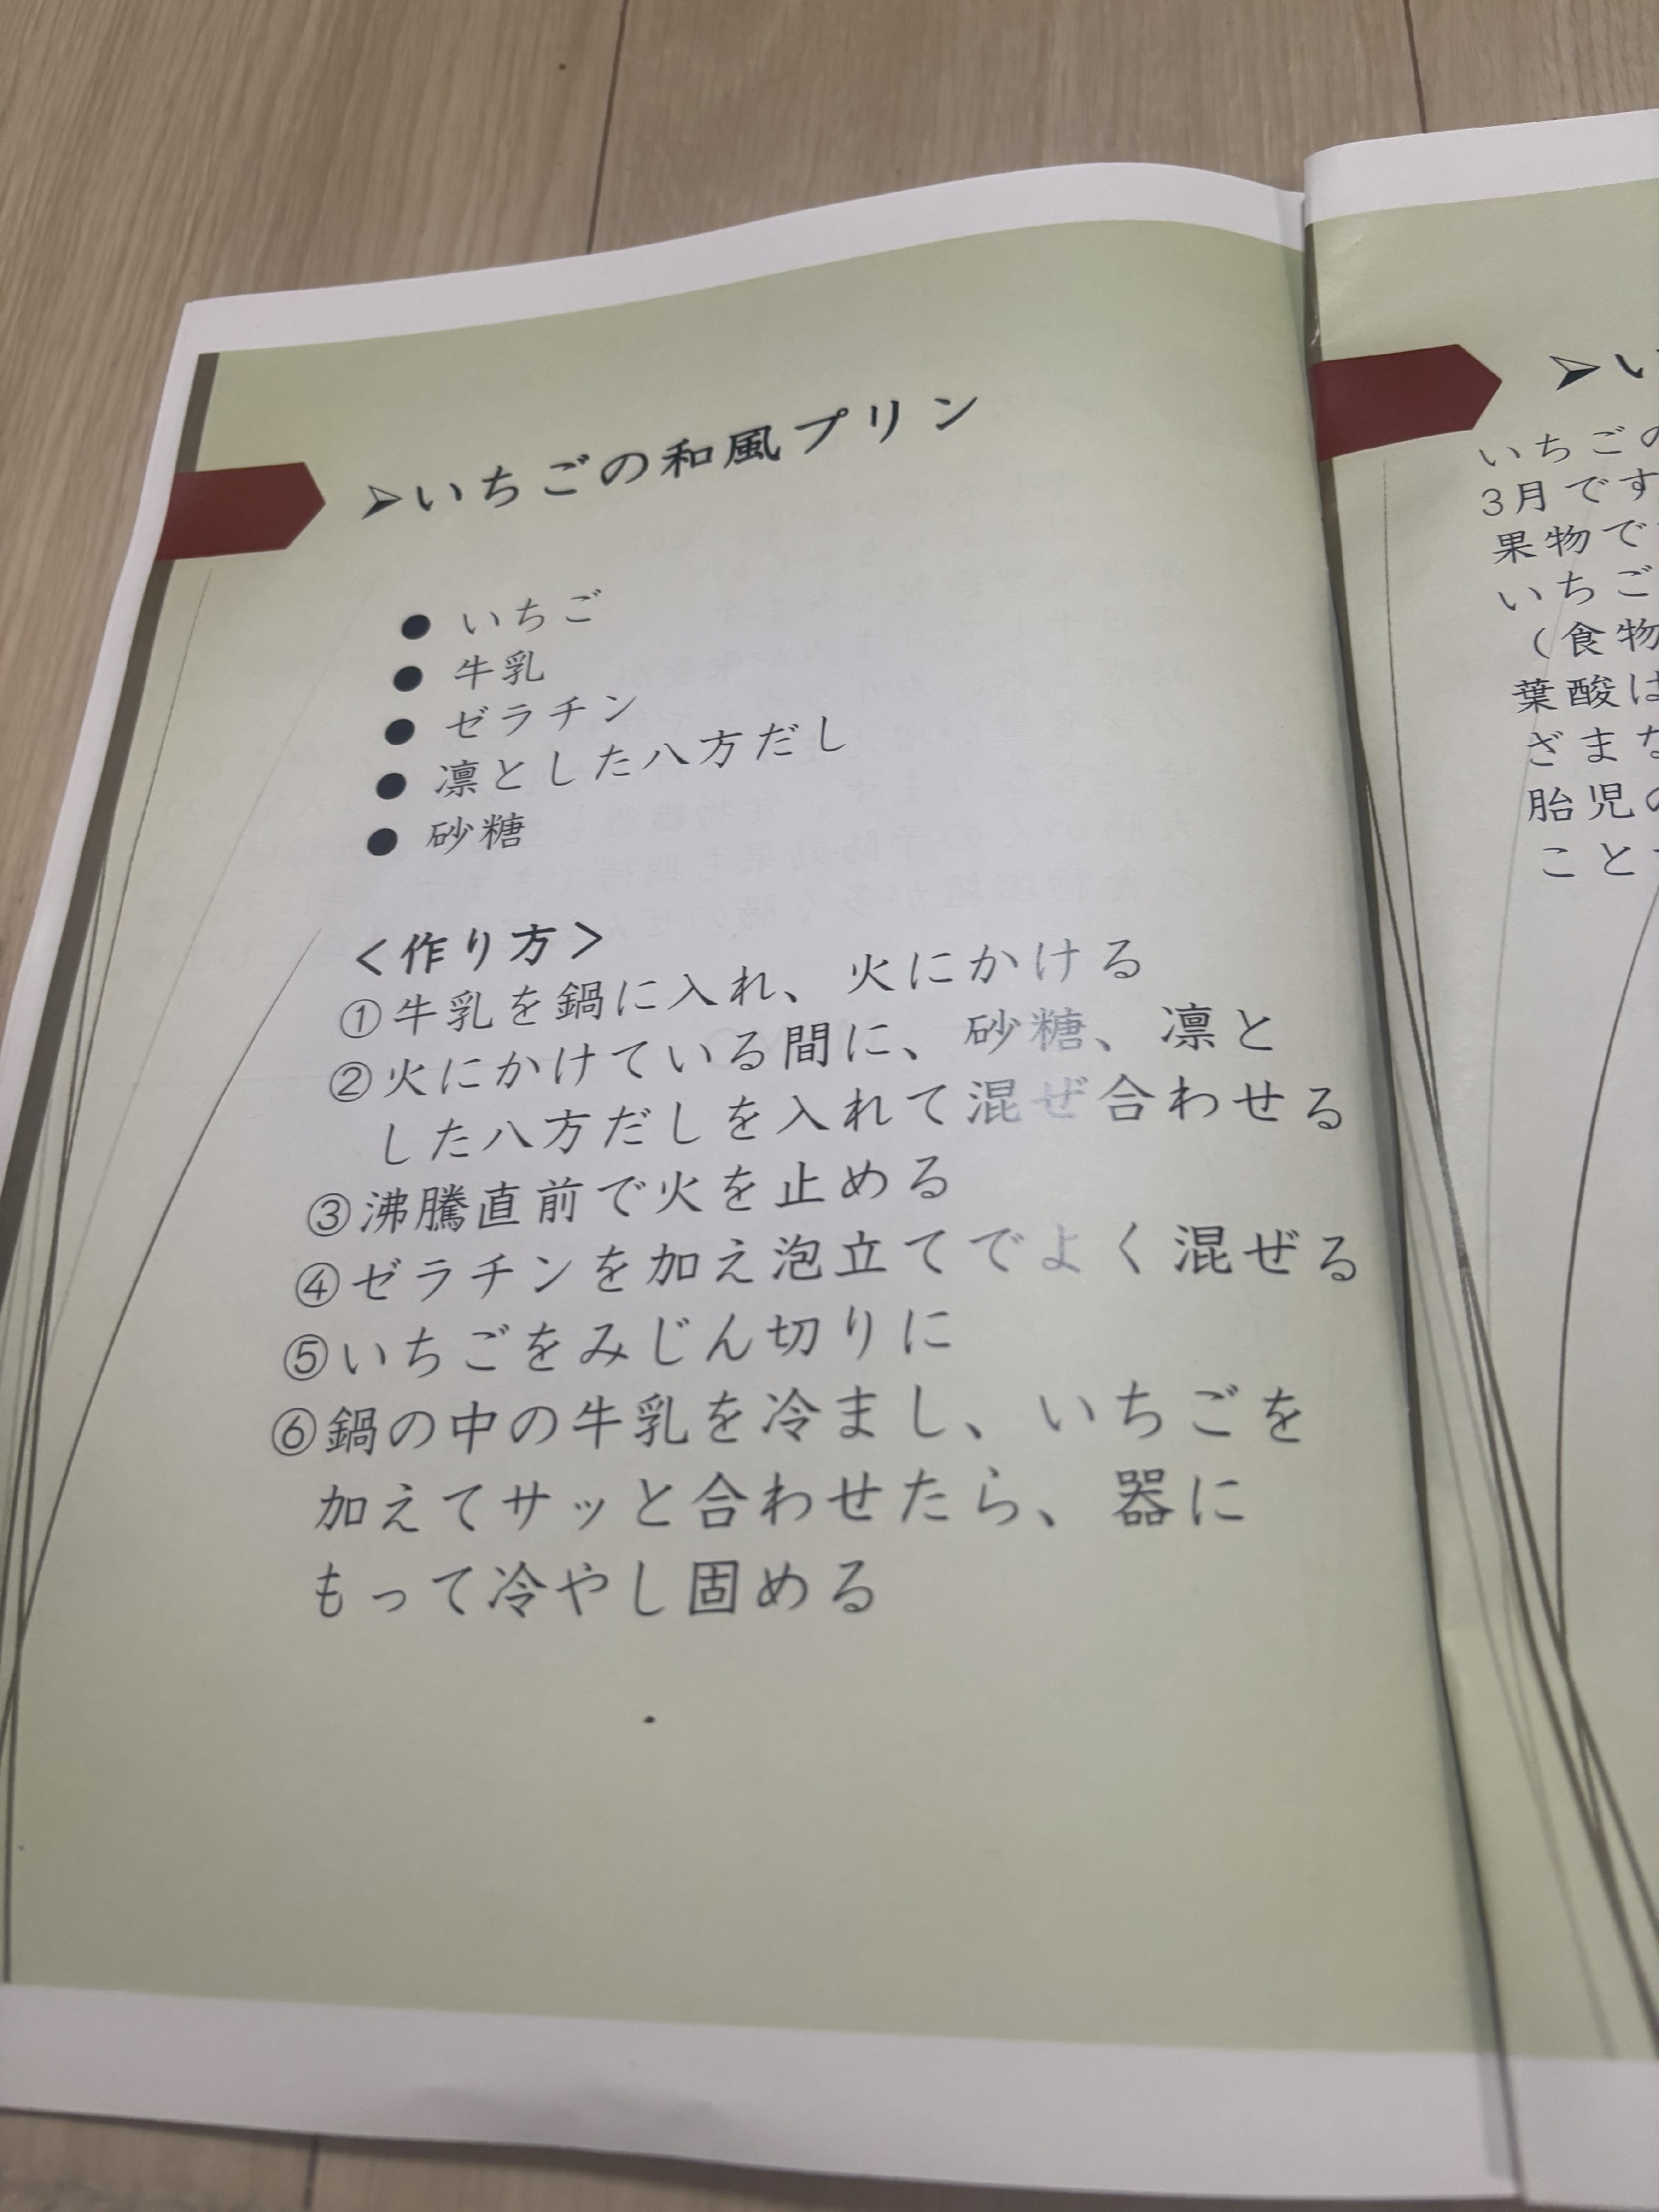 ➢いちごの和風プリン
● いちご
● 牛乳
● ゼラチン
● 凛とした八方だし
● 砂糖
＜作り方＞
①牛乳を鍋に入れ、火にかける
②火にかけている間に、砂糖、凛と
した八方だしを入れて混ぜ合わせる
③沸騰直前で火を止める
④ゼラチンを加え泡立てでよく混ぜる
⑤いちごをみじん切りに
⑥鍋の中の牛乳を冷まし、いちごを
加えてサッと合わせたら、器に
もって冷やし固める
➢い
いちごの
3月です
果物で
いちご
（食物
葉酸は
ざまな
胎児の
こと